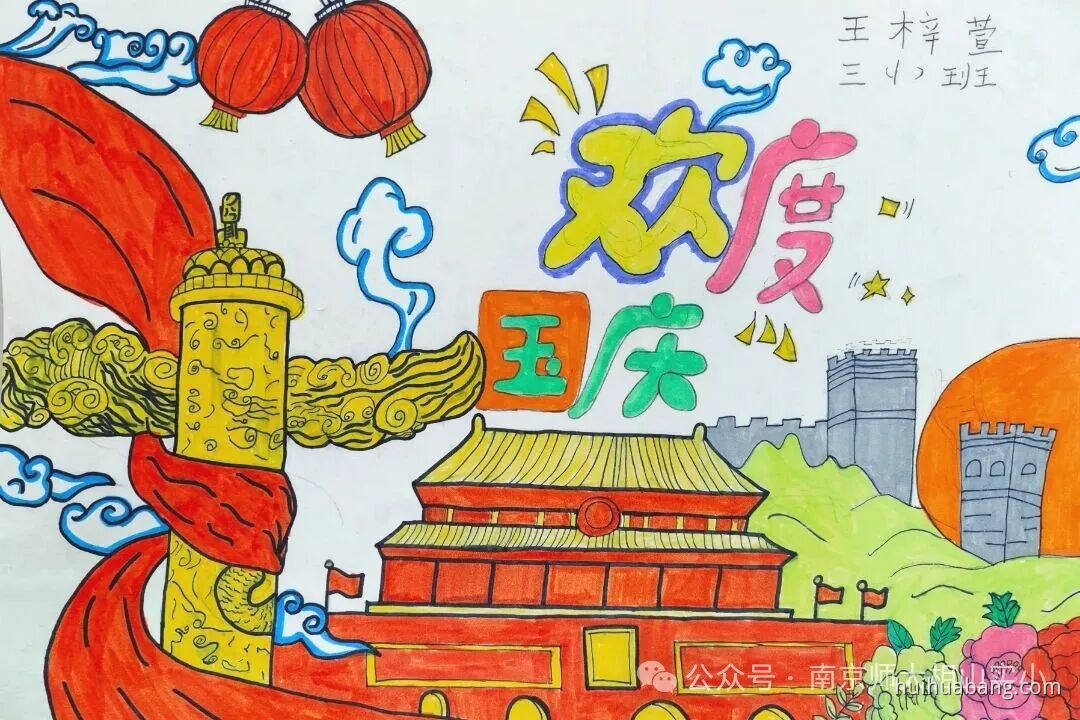 王梓萱
三(1)班
欢度
国庆
公众号·南京师大相山实小
huihuabang.com